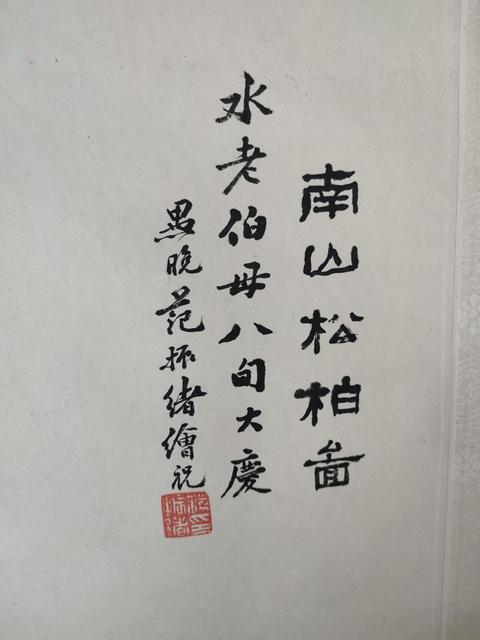 南山松柏啚
水老伯母八旬大慶
愚晚范振緒繪祝